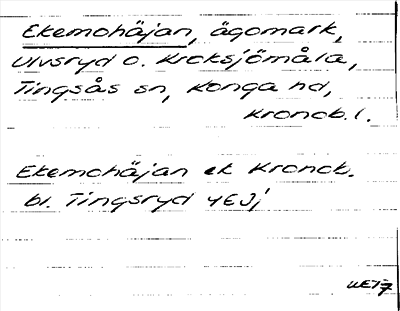 Ekemohäjan, ägomark,
Ulvsryd o. Kroksjömåla,
Tingsås sn, Konga hd,
Kronob. l.
Ekemohäjan ek Kronob.
bl. Tingsryd 4E3j